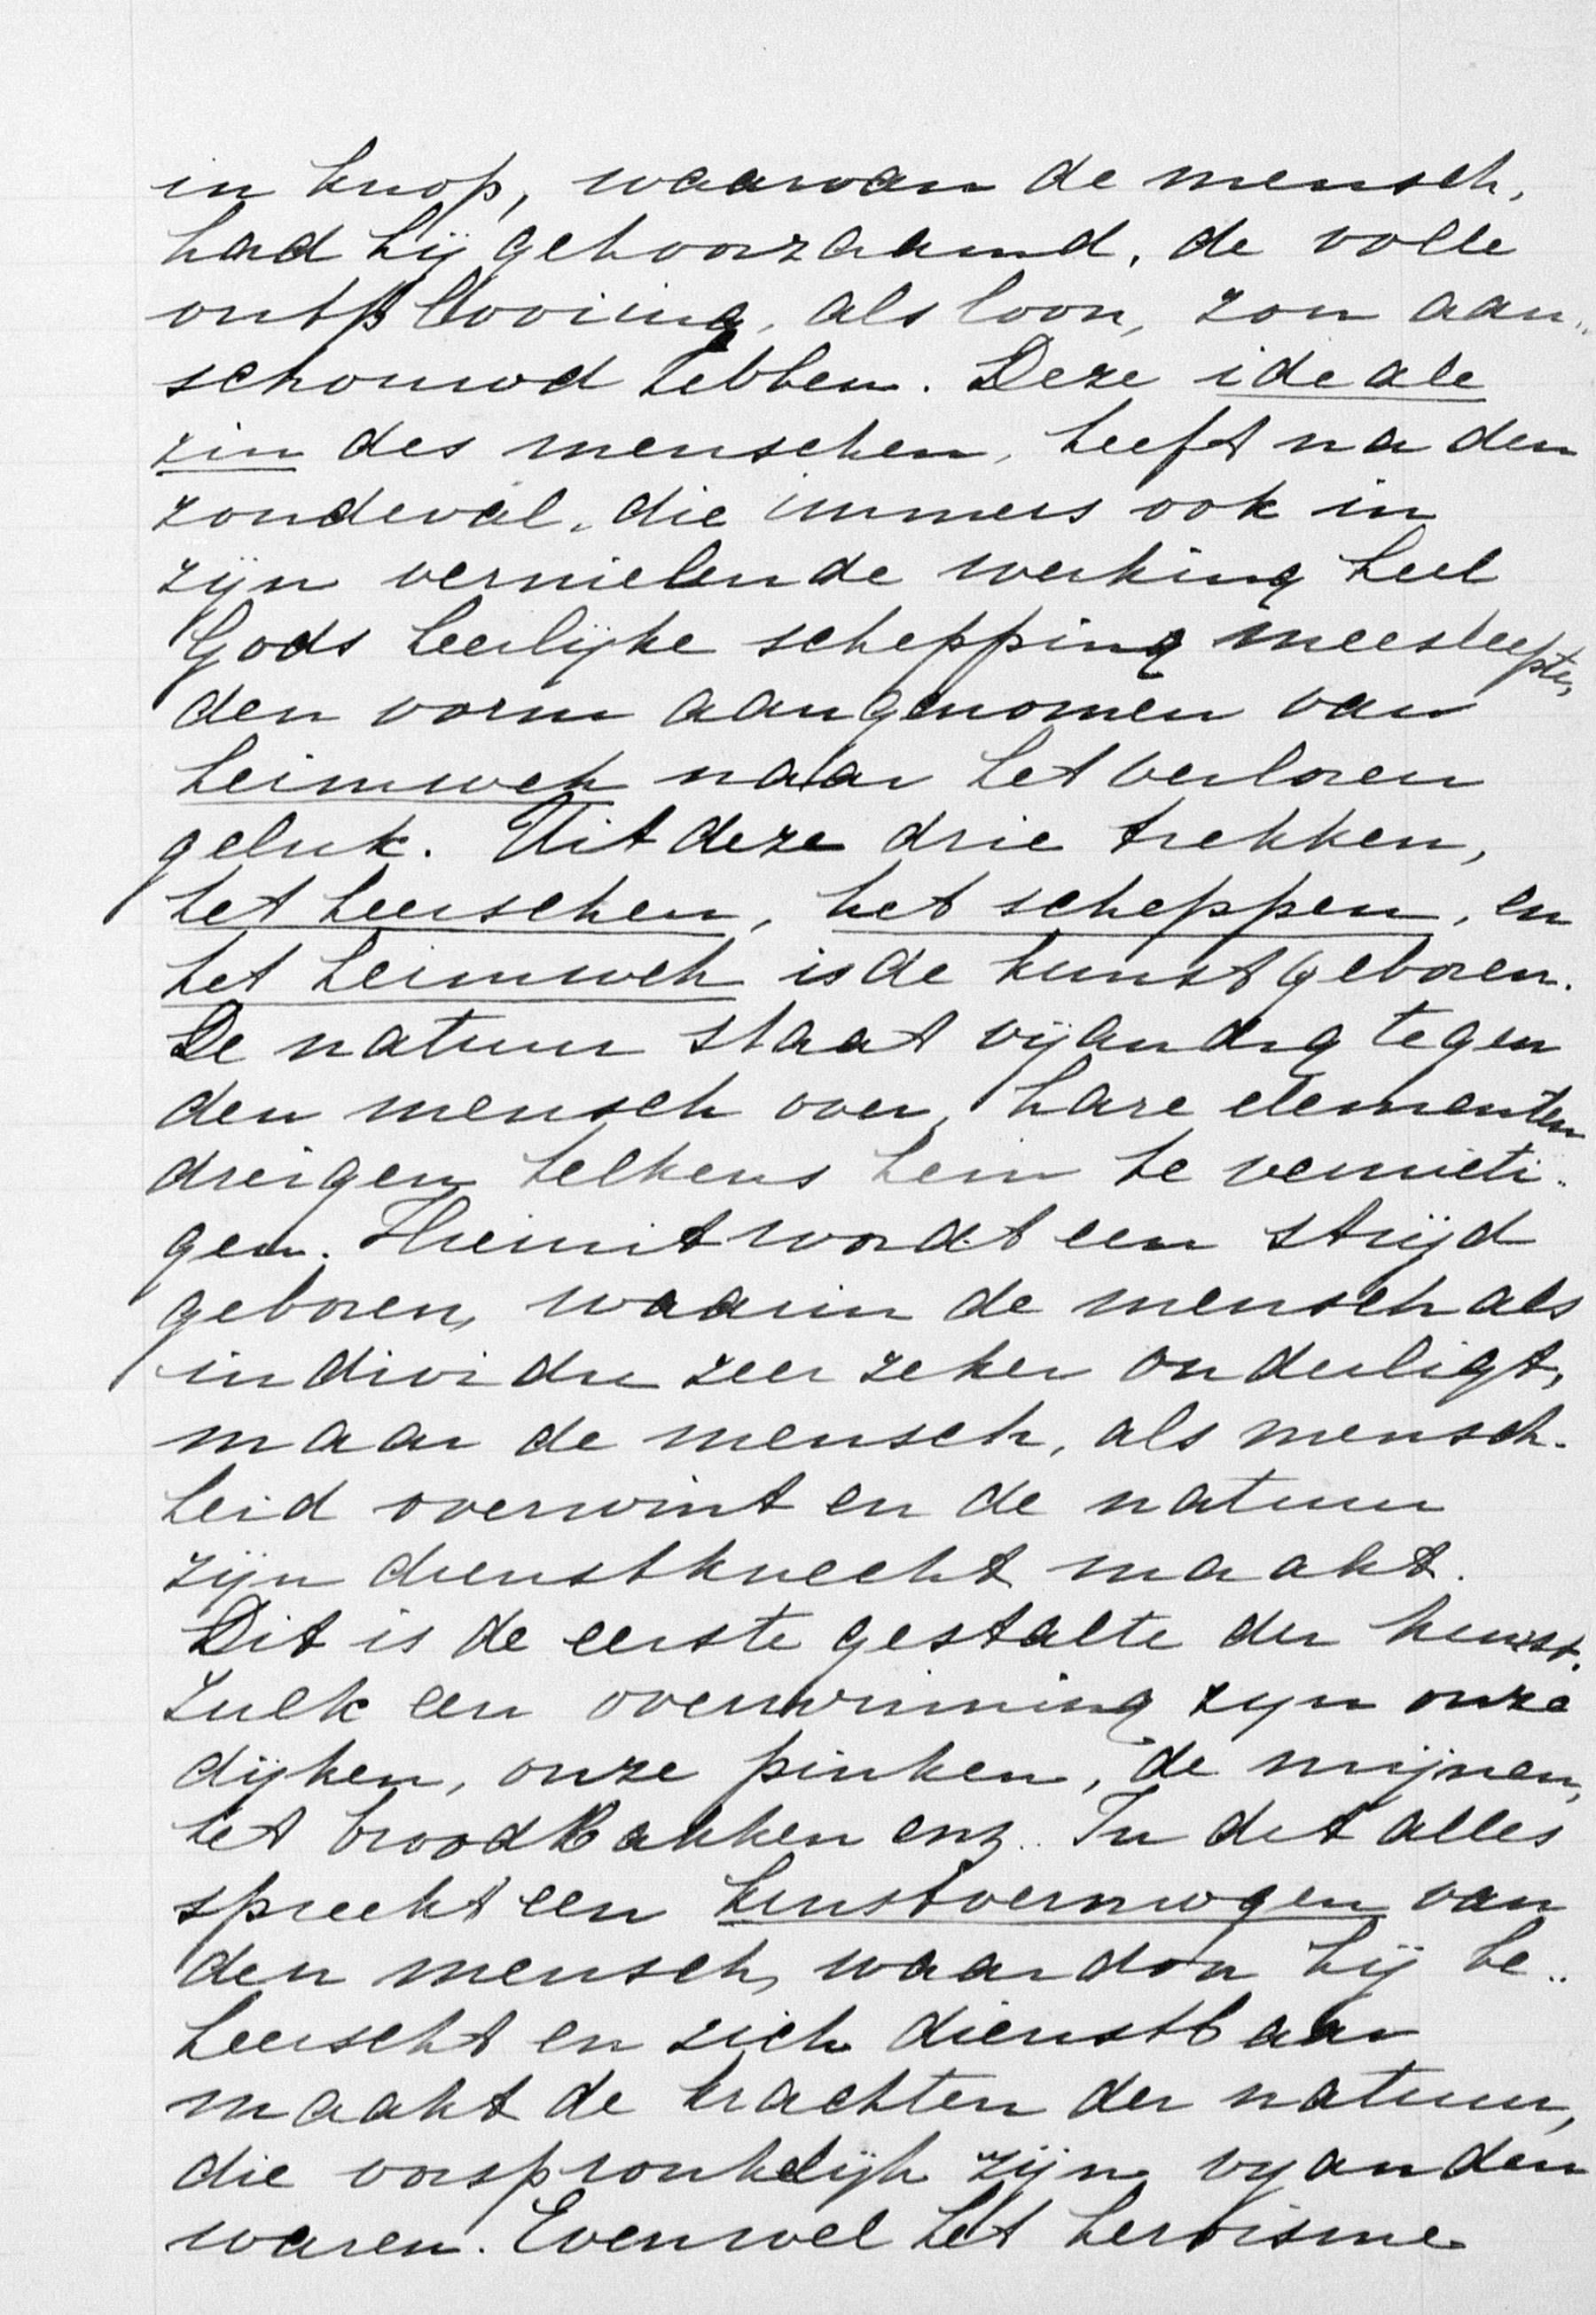 in knop, waarvan de mensch,
had hij gehoorzaamd, de volle
ontplooiing, als loon, zou aan„
schouwd hebben. Deze ideale
zin des menschen, heeft na den
zondeval, die immers ook in
zijn vernielende werking heel
Gods heerlijke schepping meesleepte,
den vorm aangenomen van
heimweh naar het verloren
geluk. Uit deze drie trekken,
het heerschen, het scheppen, en
het heimweh is de kunst geboren.
De natuur staat vijandig tegen
den mensch over, hare elementen
dreigen telkens hem te vernieti„
gen. Hieruit wordt een strijd
geboren, waarin de mensch als
individu zeer zeker onderligt,
maar de mensch, als mensch-
heid overwint en de natuur
zijn dienstknecht maakt.
Dit is de eerste gestalte der kunst.
Zulk een overwinning zijn onze
dijken, onze pinken, de mijnen,
het broodbakken enz. In dit alles
spreekt een kunstvermogen van
den mensch, waardoor hij be„
heerscht en zich dienstbaar
maakt de krachten der natuur,
die oorspronkelijk zijn vijanden
waren. Evenwel het heroisme